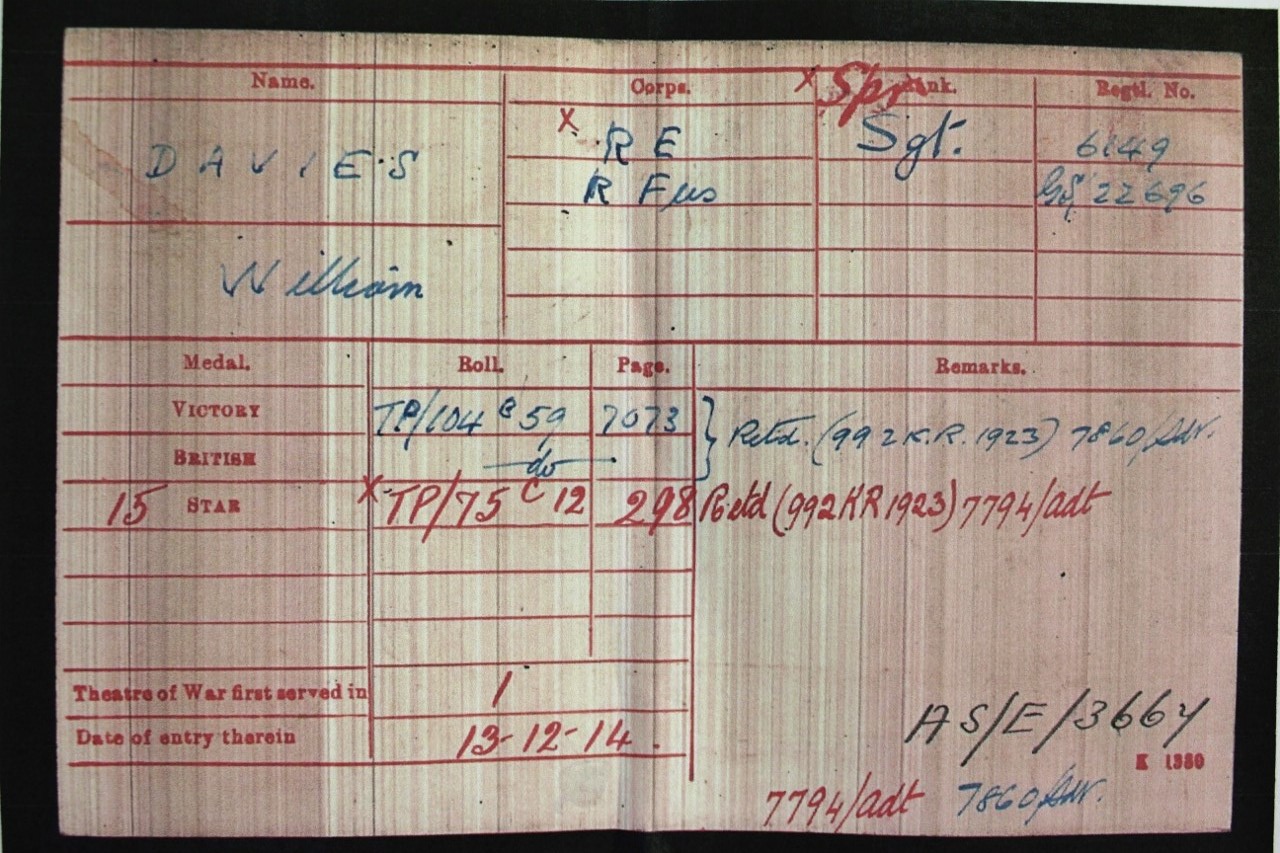 Name. Corps. Rank. Regtl. No.
x Spr
DAVIES x RE Sgt. 6149
R Fus GS/22696
William
Medal. Roll. Page. Remarks.
VICTORY TP/104 B 59 7073 } Retd. (992 K.R. 1923) 7860/Adt.
BRITISH do
15 STAR x TP/75 C 12 298 Retd (992 KR 1923) 7794/adt
Theatre of War first served in 1
Date of entry therein 13-12-14.
AS/E/3664
K 1380
7794/adt 7860/Adt.